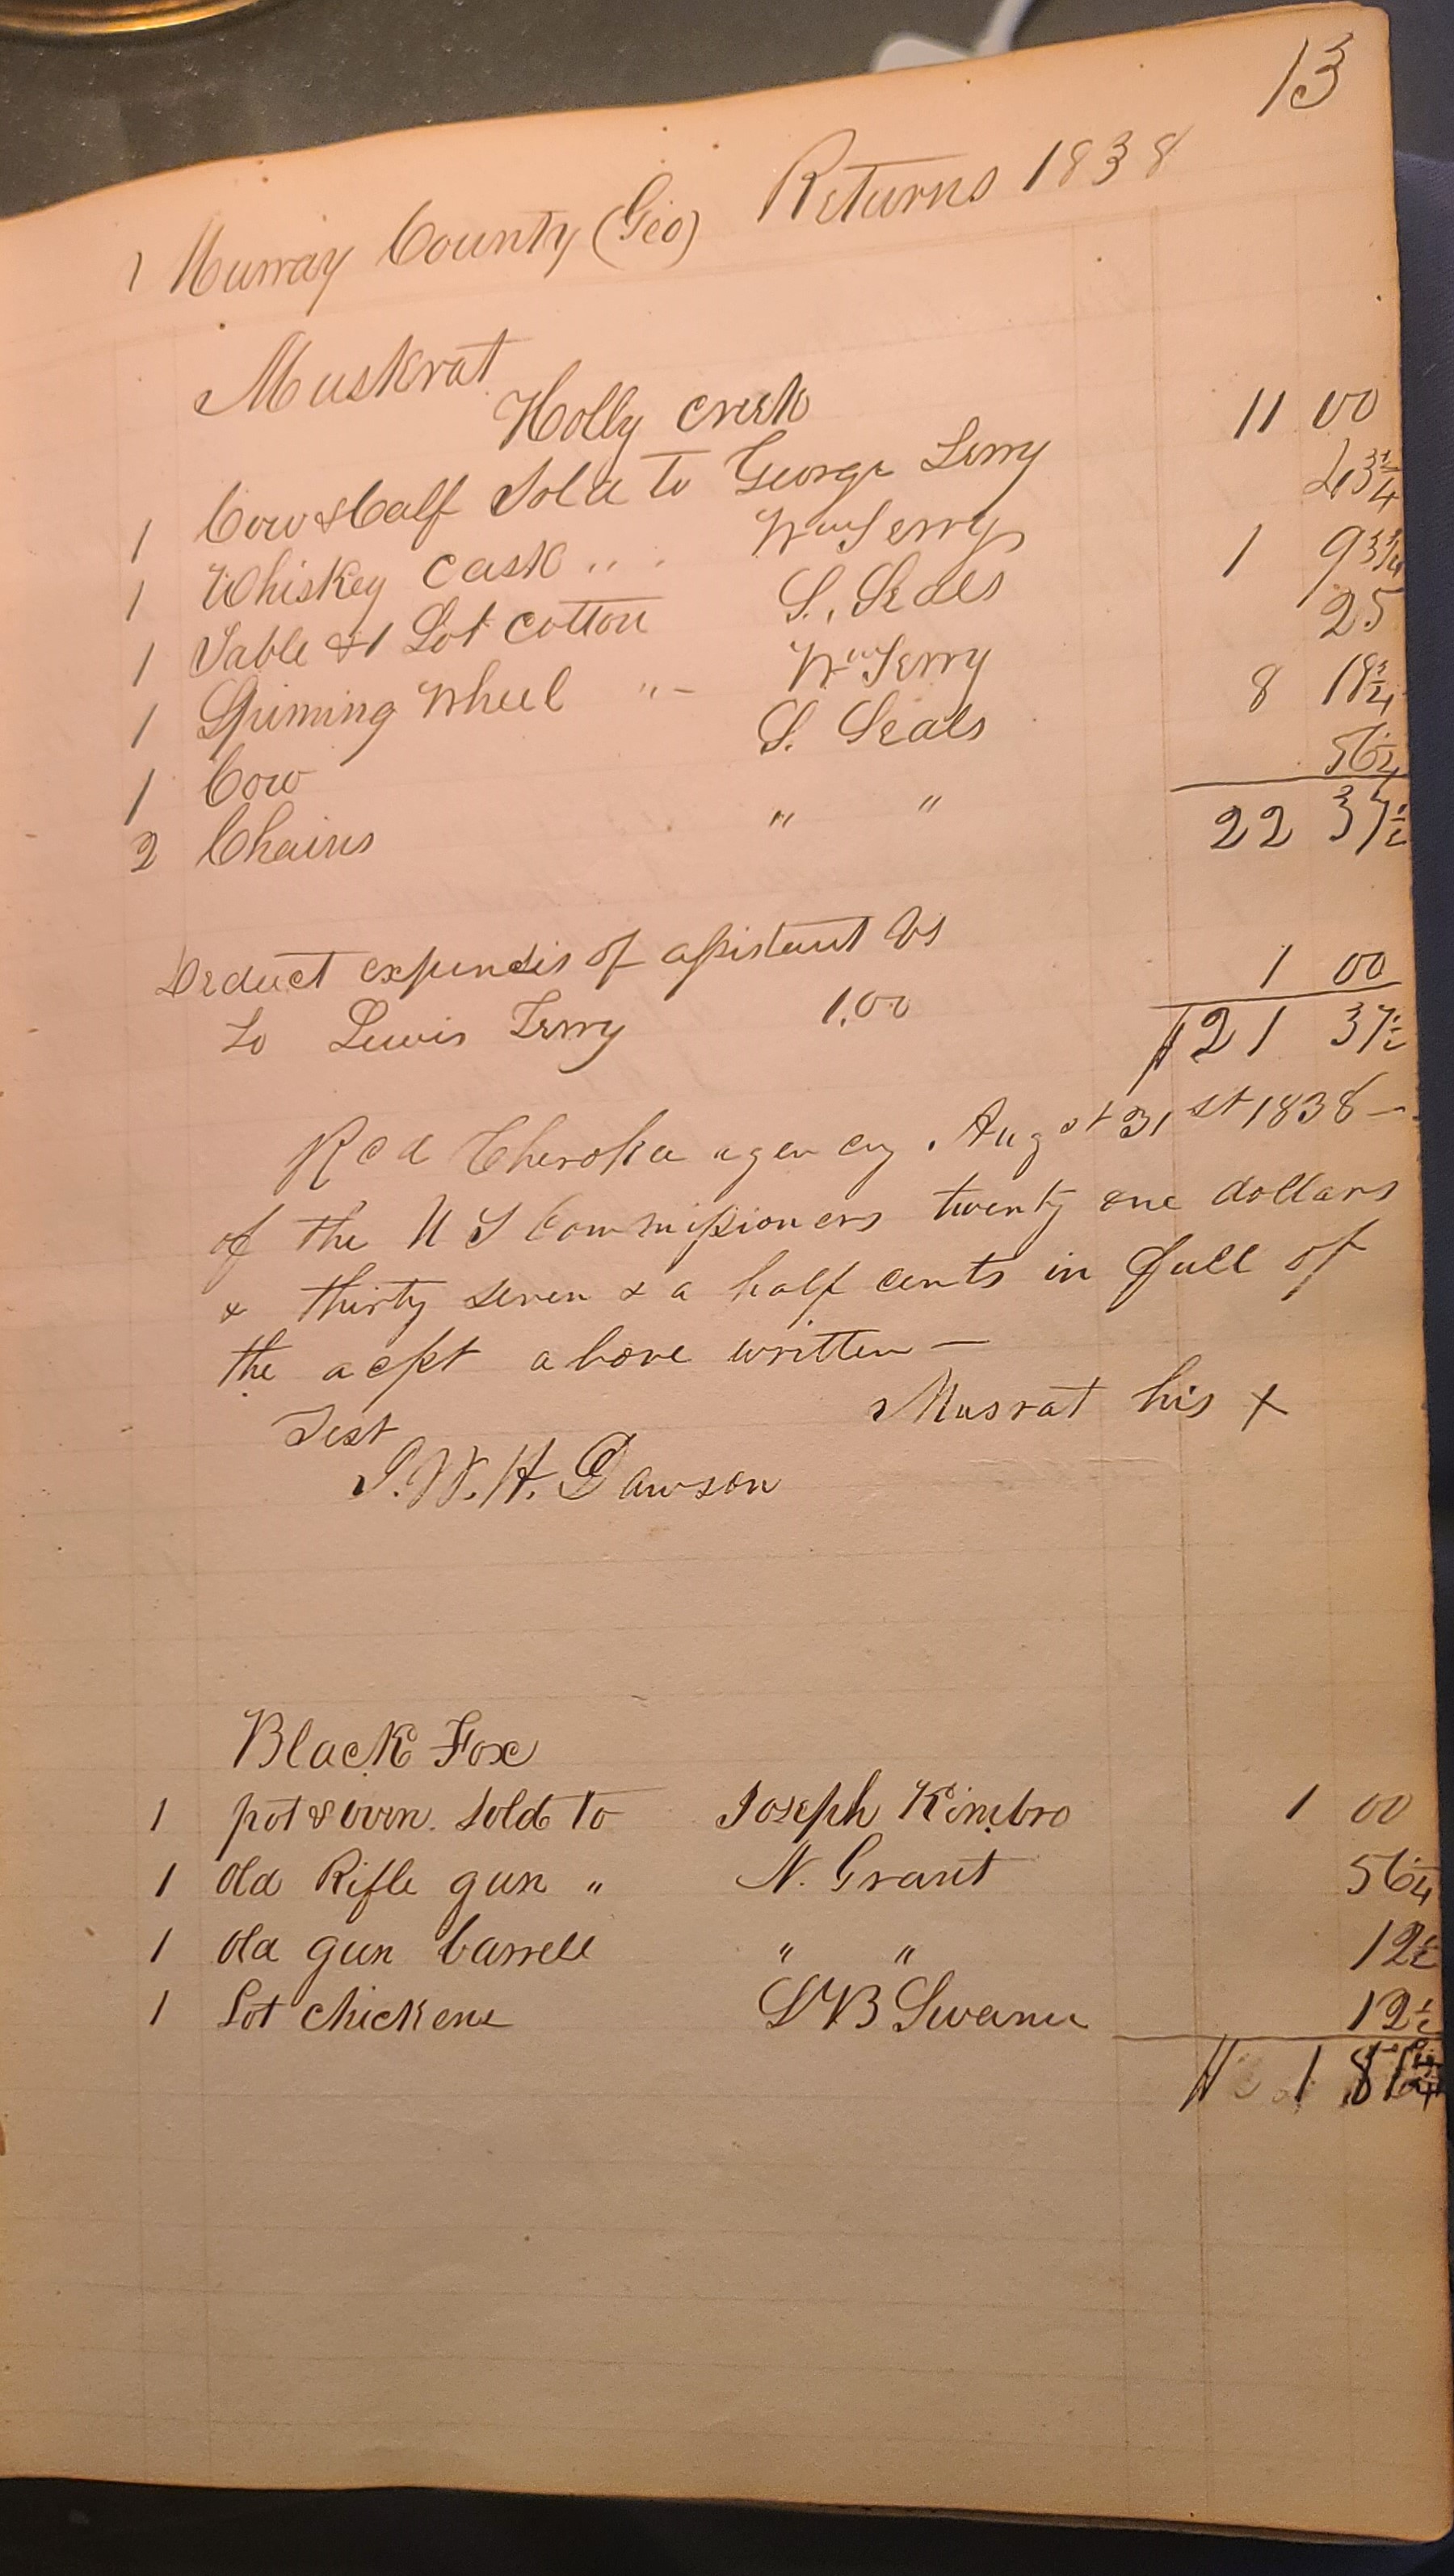 13
1 Murray County (Geo) Returns 1838
Muskrat
Holly creek
1 Cow & Calf Sold to George Terry 11 00
1 Whiskey cask " " Wm Terry 43 3/4
1 Table & 1 Lot cotton S. Seals 1 93 3/4
1 Spinning Wheel " Wm Terry 25
1 Cow S. Seals 8 18 3/4
2 Chains " " 56 1/4
22 37 1/2
Deduct expenses of assistant
to Lewis Terry 1.00 1 00
$21 37 1/2
Rcd Cherokee agency. Augst 31st 1838 —
of the U S Commissioners twenty one dollars
& thirty seven & a half cents in full of
the above written —
Musrat his x
Test
J. W. H. Dawson
Black Fox
1 pot & oven. Sold to Joseph Kimbro 1 00
1 old Rifle gun " N. Grant 56 1/4
1 old gun barrell " " 12 1/2
1 Lot chickens Swanu 12 1/2
$ 1 81 1/4